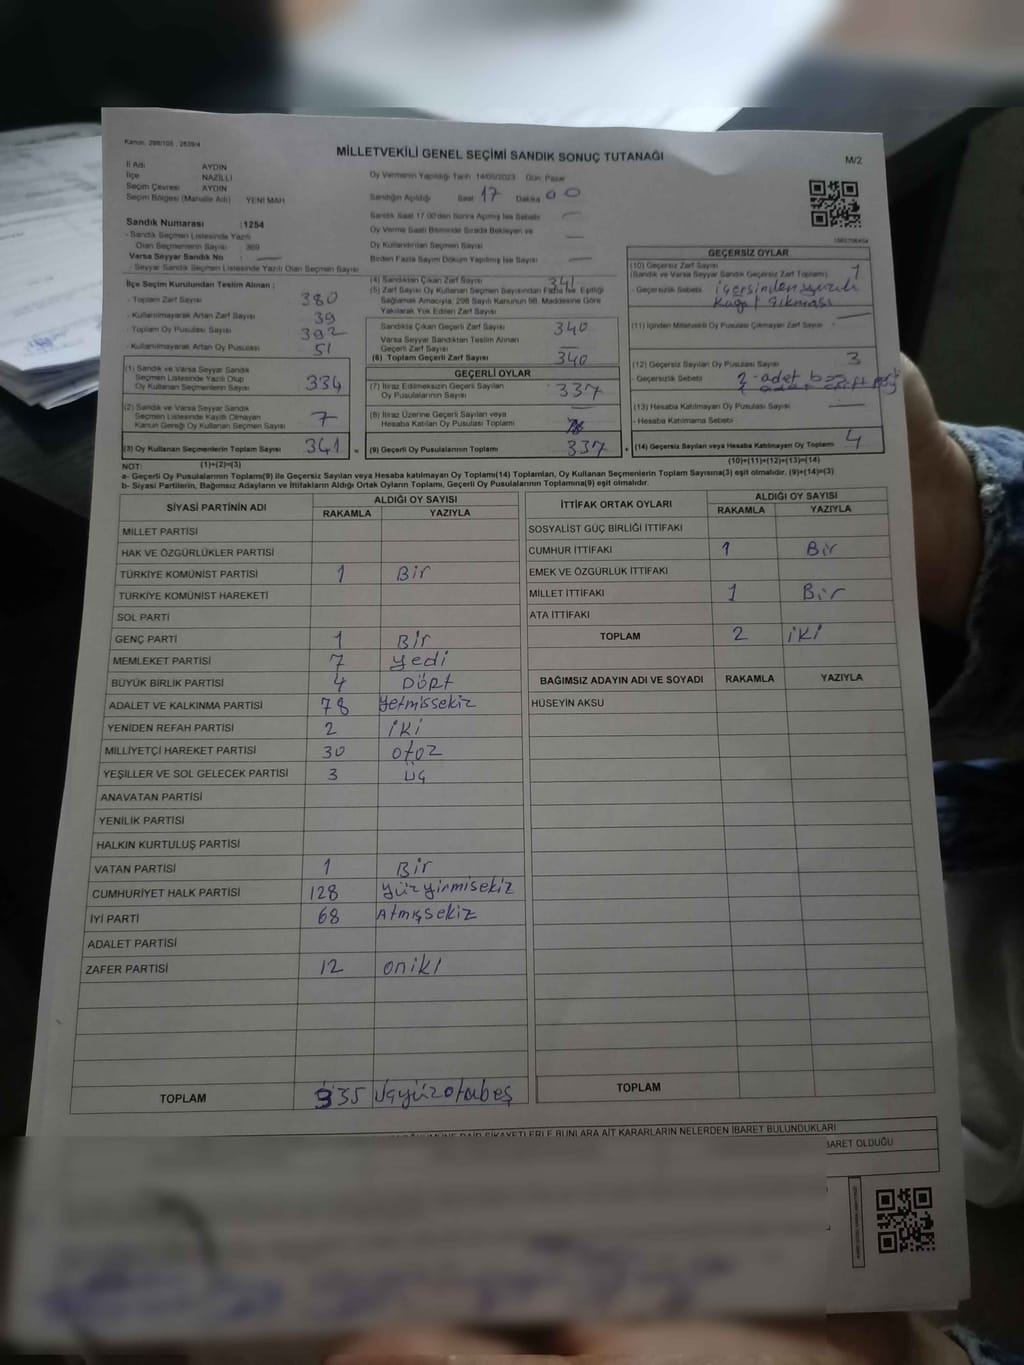 Kanun: 298/105 , 2839/4
MİLLETVEKİLİ GENEL SEÇİMİ SANDIK SONUÇ TUTANAĞI
M/2
İl Adı AYDIN
İlçe NAZİLLİ
Seçim Çevresi AYDIN
Seçim Bölgesi (Mahalle Adı) YENİ MAH
Oy Vermenin Yapıldığı Tarih 14/05/2023 Gün: Pazar
Sandığın Açıldığı Saat 17 Dakika 00
Sandık Saat 17.00'den Sonra Açılmış İse Sebebi
Oy Verme Saati Bitiminde Sırada Bekleyen ve
Oy Kullandırılan Seçmen Sayısı
Birden Fazla Sayım Döküm Yapılmış İse Sayısı
Sandık Numarası : 1254
- Sandık Seçmen Listesinde Yazılı
Olan Seçmenlerin Sayısı 369
Varsa Seyyar Sandık No
- Seyyar Sandık Seçmen Listesinde Yazılı Olan Seçmen Sayısı
İlçe Seçim Kurulundan Teslim Alınan ;
- Toplam Zarf Sayısı 380
- Kullanılmayarak Artan Zarf Sayısı 39
- Toplam Oy Pusulası Sayısı 392
- Kullanılmayarak Artan Oy Pusulası 51
(1) Sandık ve Varsa Seyyar Sandık
Seçmen Listesinde Yazılı Olup
Oy Kullanan Seçmenlerin Sayısı 334
(2) Sandık ve Varsa Seyyar Sandık
Seçmen Listesinde Kayıtlı Olmayan
Kanun Gereği Oy Kullanan Seçmen Sayısı 7
(3) Oy Kullanan Seçmenlerin Toplam Sayısı 341
(4) Sandıktan Çıkan Zarf Sayısı 341
(5) Zarf Sayısı Oy Kullanan Seçmen Sayısından Fazla İse, Eşitliği
Sağlamak Amacıyla, 298 Sayılı Kanunun 98. Maddesine Göre
Yakılarak Yok Edilen Zarf Sayısı
Sandıkta Çıkan Geçerli Zarf Sayısı 340
Varsa Seyyar Sandıktan Teslim Alınan
Geçerli Zarf Sayısı
(6) Toplam Geçerli Zarf Sayısı 340
GEÇERLİ OYLAR
(7) İtiraz Edilmeksizin Geçerli Sayılan
Oy Pusulalarının Sayısı 337
(8) İtiraz Üzerine Geçerli Sayılan veya
Hesaba Katılan Oy Pusulası Toplamı
= (9) Geçerli Oy Pusulalarının Toplamı 337
GEÇERSİZ OYLAR
(10) Geçersiz Zarf Sayısı
(Sandık ve Varsa Seyyar Sandık Geçersiz Zarf Toplamı) 1
- Geçersizlik Sebebi içersinden yazılı
kağıt çıkması
(11) İçinden Milletvekili Oy Pusulası Çıkmayan Zarf Sayısı
(12) Geçersiz Sayılan Oy Pusulası Sayısı 3
- Geçersizlik Sebebi adet
(13) Hesaba Katılmayan Oy Pusulası Sayısı
- Hesaba Katılmama Sebebi
+ (14) Geçersiz Sayılan veya Hesaba Katılmayan Oy Toplamı 4
NOT: (1)+(2)=(3) (10)+(11)+(12)+(13)=(14)
a- Geçerli Oy Pusulalarının Toplamı(9) ile Geçersiz Sayılan veya Hesaba katılmayan Oy Toplamı(14) Toplamları, Oy Kullanan Seçmenlerin Toplam Sayısına(3) eşit olmalıdır. (9)+(14)=(3)
b- Siyasi Partilerin, Bağımsız Adayların ve İttifakların Aldığı Ortak Oyların Toplamı, Geçerli Oy Pusulalarının Toplamına(9) eşit olmalıdır.
SİYASİ PARTİNİN ADI ALDIĞI OY SAYISI
RAKAMLA YAZIYLA
MİLLET PARTİSİ
HAK VE ÖZGÜRLÜKLER PARTİSİ
TÜRKİYE KOMÜNİST PARTİSİ 1 Bir
TÜRKİYE KOMÜNİST HAREKETİ
SOL PARTİ
GENÇ PARTİ 1 Bir
MEMLEKET PARTİSİ 7 yedi
BÜYÜK BİRLİK PARTİSİ 4 DÖRT
ADALET VE KALKINMA PARTİSİ 78 yetmissekiz
YENİDEN REFAH PARTİSİ 2 iKi
MİLLİYETÇİ HAREKET PARTİSİ 30 otoz
YEŞİLLER VE SOL GELECEK PARTİSİ 3 üç
ANAVATAN PARTİSİ
YENİLİK PARTİSİ
HALKIN KURTULUŞ PARTİSİ
VATAN PARTİSİ 1 Bir
CUMHURİYET HALK PARTİSİ 128 yüzyirmisekiz
İYİ PARTİ 68 Atmışsekiz
ADALET PARTİSİ
ZAFER PARTİSİ 12 oniki
TOPLAM 335 üçyüzotubeş
İTTİFAK ORTAK OYLARI ALDIĞI OY SAYISI
RAKAMLA YAZIYLA
SOSYALİST GÜÇ BİRLİĞİ İTTİFAKI
CUMHUR İTTİFAKI 1 Bir
EMEK VE ÖZGÜRLÜK İTTİFAKI
MİLLET İTTİFAKI 1 Bir
ATA İTTİFAKI
TOPLAM 2 iki
BAĞIMSIZ ADAYIN ADI VE SOYADI RAKAMLA YAZIYLA
HÜSEYİN AKSU
TOPLAM
DAİR ŞİKAYETLERLE BUNLARA AİT KARARLARIN NELERDEN İBARET BULUNDUKLARI
İBARET OLDUĞU